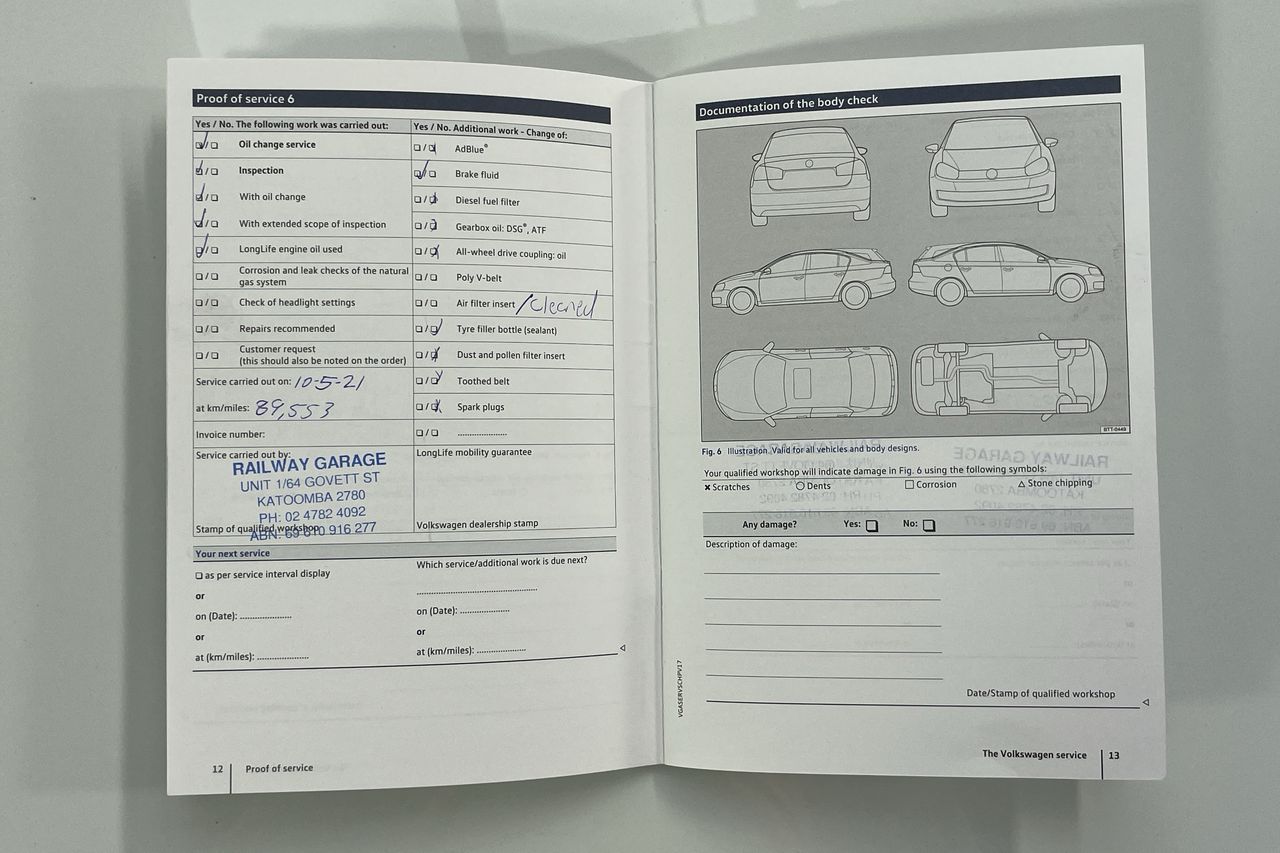 Proof of service 6
Yes / No. The following work was carried out:
Oil change service
Inspection
With oil change
With extended scope of inspection
LongLife engine oil used
Corrosion and leak checks of the natural
gas system
Check of headlight settings
Repairs recommended
Customer request
(this should also be noted on the order)
Service carried out on: 10-5-21
at km/miles: 89,553
Invoice number:
Service carried out by:
RAILWAY GARAGE
UNIT 1/64 GOVETT ST
KATOOMBA 2780
PH: 02 4782 4092
ABN: 69 610 916 277
Stamp of qualified workshop
Yes / No. Additional work - Change of:
AdBlue®
Brake fluid
Diesel fuel filter
Gearbox oil: DSG®, ATF
All-wheel drive coupling: oil
Poly V-belt
Air filter insert /Cleaned
Tyre filler bottle (sealant)
Dust and pollen filter insert
Toothed belt
Spark plugs
......................
LongLife mobility guarantee
Volkswagen dealership stamp
Your next service
as per service interval display
or
on (Date): ......................
or
at (km/miles): ......................
Which service/additional work is due next?
......................................................
on (Date): ......................
or
at (km/miles): ......................
12 Proof of service
Documentation of the body check
BTT-0449
Fig. 6 Illustration. Valid for all vehicles and body designs.
Your qualified workshop will indicate damage in Fig. 6 using the following symbols:
× Scratches ○ Dents □ Corrosion △ Stone chipping
Any damage? Yes: No:
Description of damage:
VGASERVSCHPV17
Date/Stamp of qualified workshop
The Volkswagen service 13